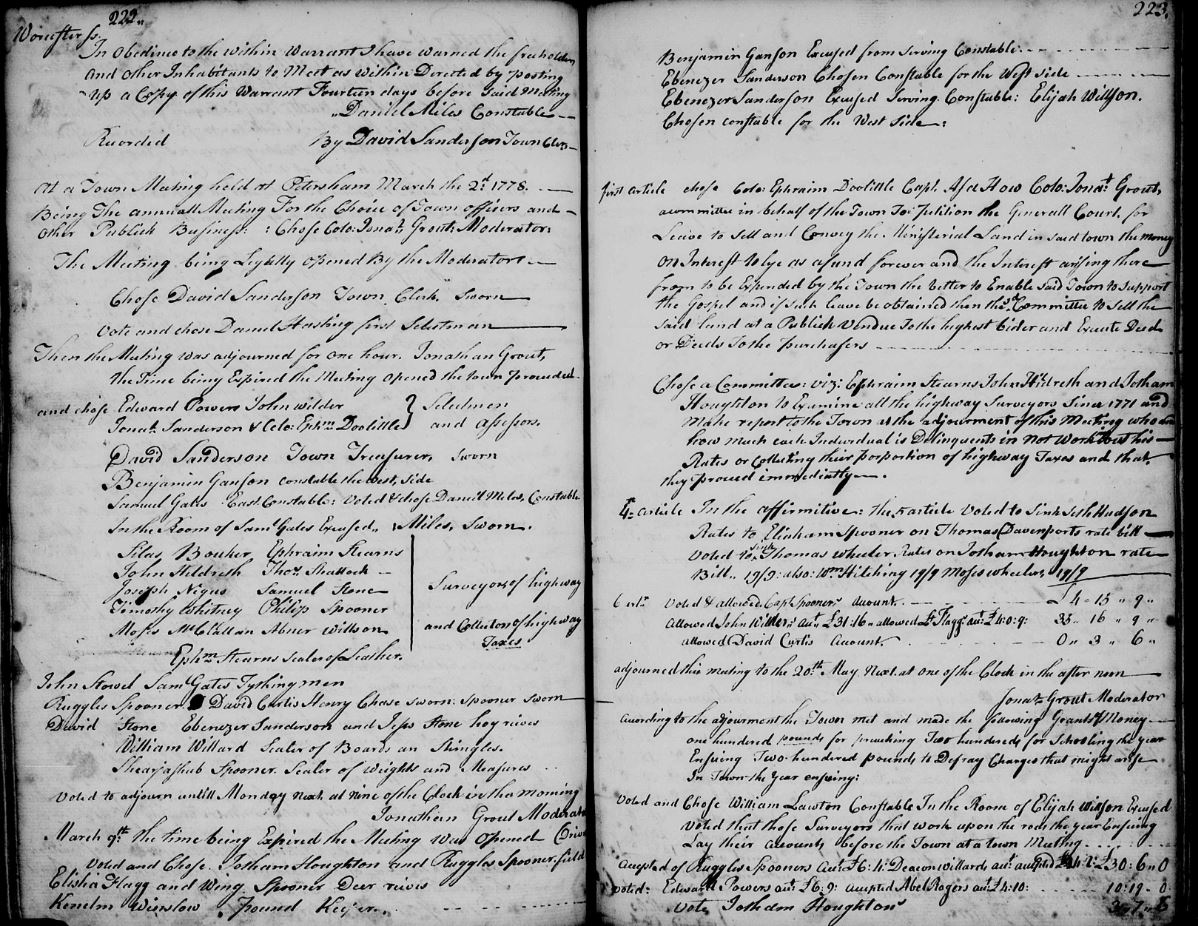 222
Worcester ss.
In Obedince to the within Warrant I have warned the freeholders
and other Inhabitants to Meet as within Directed by posting
up a Copy of this Warrant Fourteen days before Said Meeting
Daniel Miles Constable
Recorded By David Sanderson Town Clerk
At a Town Meeting held at Petersham March the 2d 1778.
Being The annuall Meeting For the Choice of Town officers and
other Publick Business: Chose Colo: Jonan. Grout Moderator
The Meeting being Lgally opened By the Moderator
Chose David Sanderson Town Clerk Sworn
Vote and chose Daniel Hasting first Selectman
Then the Meeting was adjourned for one hour. Jonathan Grout
the Time being Expired the Meeting opened the town proceeded
and chose Edward Powers John Wilder } Selectmen
Jonan. Sanderson & Colo: Ephm Doolittle and assessors.
David Sanderson Town Treasurer, Sworn
Benjamin Ganson constable the west side
Samuel Gates East Constable: Voted & chose Daniel Miles, Constable
In the Room of Saml Gates Excused, Miles, Sworn.
Silas Bouker Ephraim Stearns
John Hildreth Thos. Shattock
Joseph Negus Samuel Stone Surveyors of highway
Timothy Whitney Philip Spooner
Moses McClallan Abner Willson and Collectors of highway
Taxes
Ephm Stearns Sealer of Leather.
John Stowel Saml Gates Tythingmen
Ruggles Spooner David Curtis Henry Chase Sworn: Spooner Sworn
David Stone Ebenezer Sanderson and Jesse Stone hog reives
William Willard Sealer of Boards an Shingles.
Shearjashub Spooner Sealer of Weights and Measures
Voted to adjourn untill Monday next at nine of the Clock in the morning
Jonathan Grout Moderator
March 9th the time being Expired the Meeting was opened
Voted and Chose Jotham Houghton and Ruggles Spooner field
Elisha Flagg and Wing Spooner Deer reives
Kenelm Winslow Pound Keeper
223.
Benjamin Ganson Excused from Serving Constable.
Ebenezer Sanderson Chosen Constable for the West side
Ebenezer Sanderson Excused Serving Constable: Elijah Willson.
Chosen constable for the West Side:
first article chose Colo: Ephraim Doolittle Capt. Asa How Colo: Jonat. Grout,
a committee in behalf of the Town To Petition the Generall Court, for
Leave to Sell and Convey the Ministerial Land in said town the money
on Interest to lye as a fund forever and the Interest arising there
from to be Expended by the Town the better to Enable Said Town to Support
the Gospel and if such leave be obtained then the sd Committee to Sell the
Said Land at a Publick Vendue To the highest bider and Excute Deed
or Deeds to the purchasers
Chose a Committee: viz: Ephraim Stearns John Hildreth and Jotham
Houghton to Examine all the highway Surveyors Since 1771 and
make report to the Town at the adjourment of this Meeting who and
how much each Individual is Delinquents in not Working out his
Rates or Collecting their porportion of highway Taxes and that
they proceed immediately.
4th article In the affirmitive: the article Voted to Sink Seth Hudson
Rates to Eliakam Spooner on Thomas Davenports rate bill
Voted to Sink Thomas Wheeler Rates on Jotham Houghton rate
Bill 19/9: also: Wm Hitching 19/9 Moses wheeler, 19/9
6 artl. Voted & allowed Capt Spooner Acount £4 - 15 - 9
allowed John Wilder act £31:16 allowed Lt Flagg act £4:0:9: 35 - 16 - 9
allowed David Curtis Acount 0 - 3 - 6
adjourned this meeting to the 20th May Next at one of the Clock in the after noon
Jonan Grout Moderator
According to the adjourment the Town met and made the following Grants of Money
one hundred pounds for preaching Two hundreds for Schooling the year
Ensuing Two hundred pounds to Defray Charges that might arise
In Town the Year ensuing:
Voted and Chose William Lawton Constable In the Room of Elijah Willson Excused
Voted that those Surveyors that work upon the rods the year Ensuing
Lay their Acounts before the Town at a town Meeting
Accepted of Ruggles Spooners act £6:4: Deacon Willards act accepted £30:6:0
Voted: Edward Powers act £6:9: accepted Abel Rogers act £4:10: 10:19 - 0
Vote Jothdon Houghton